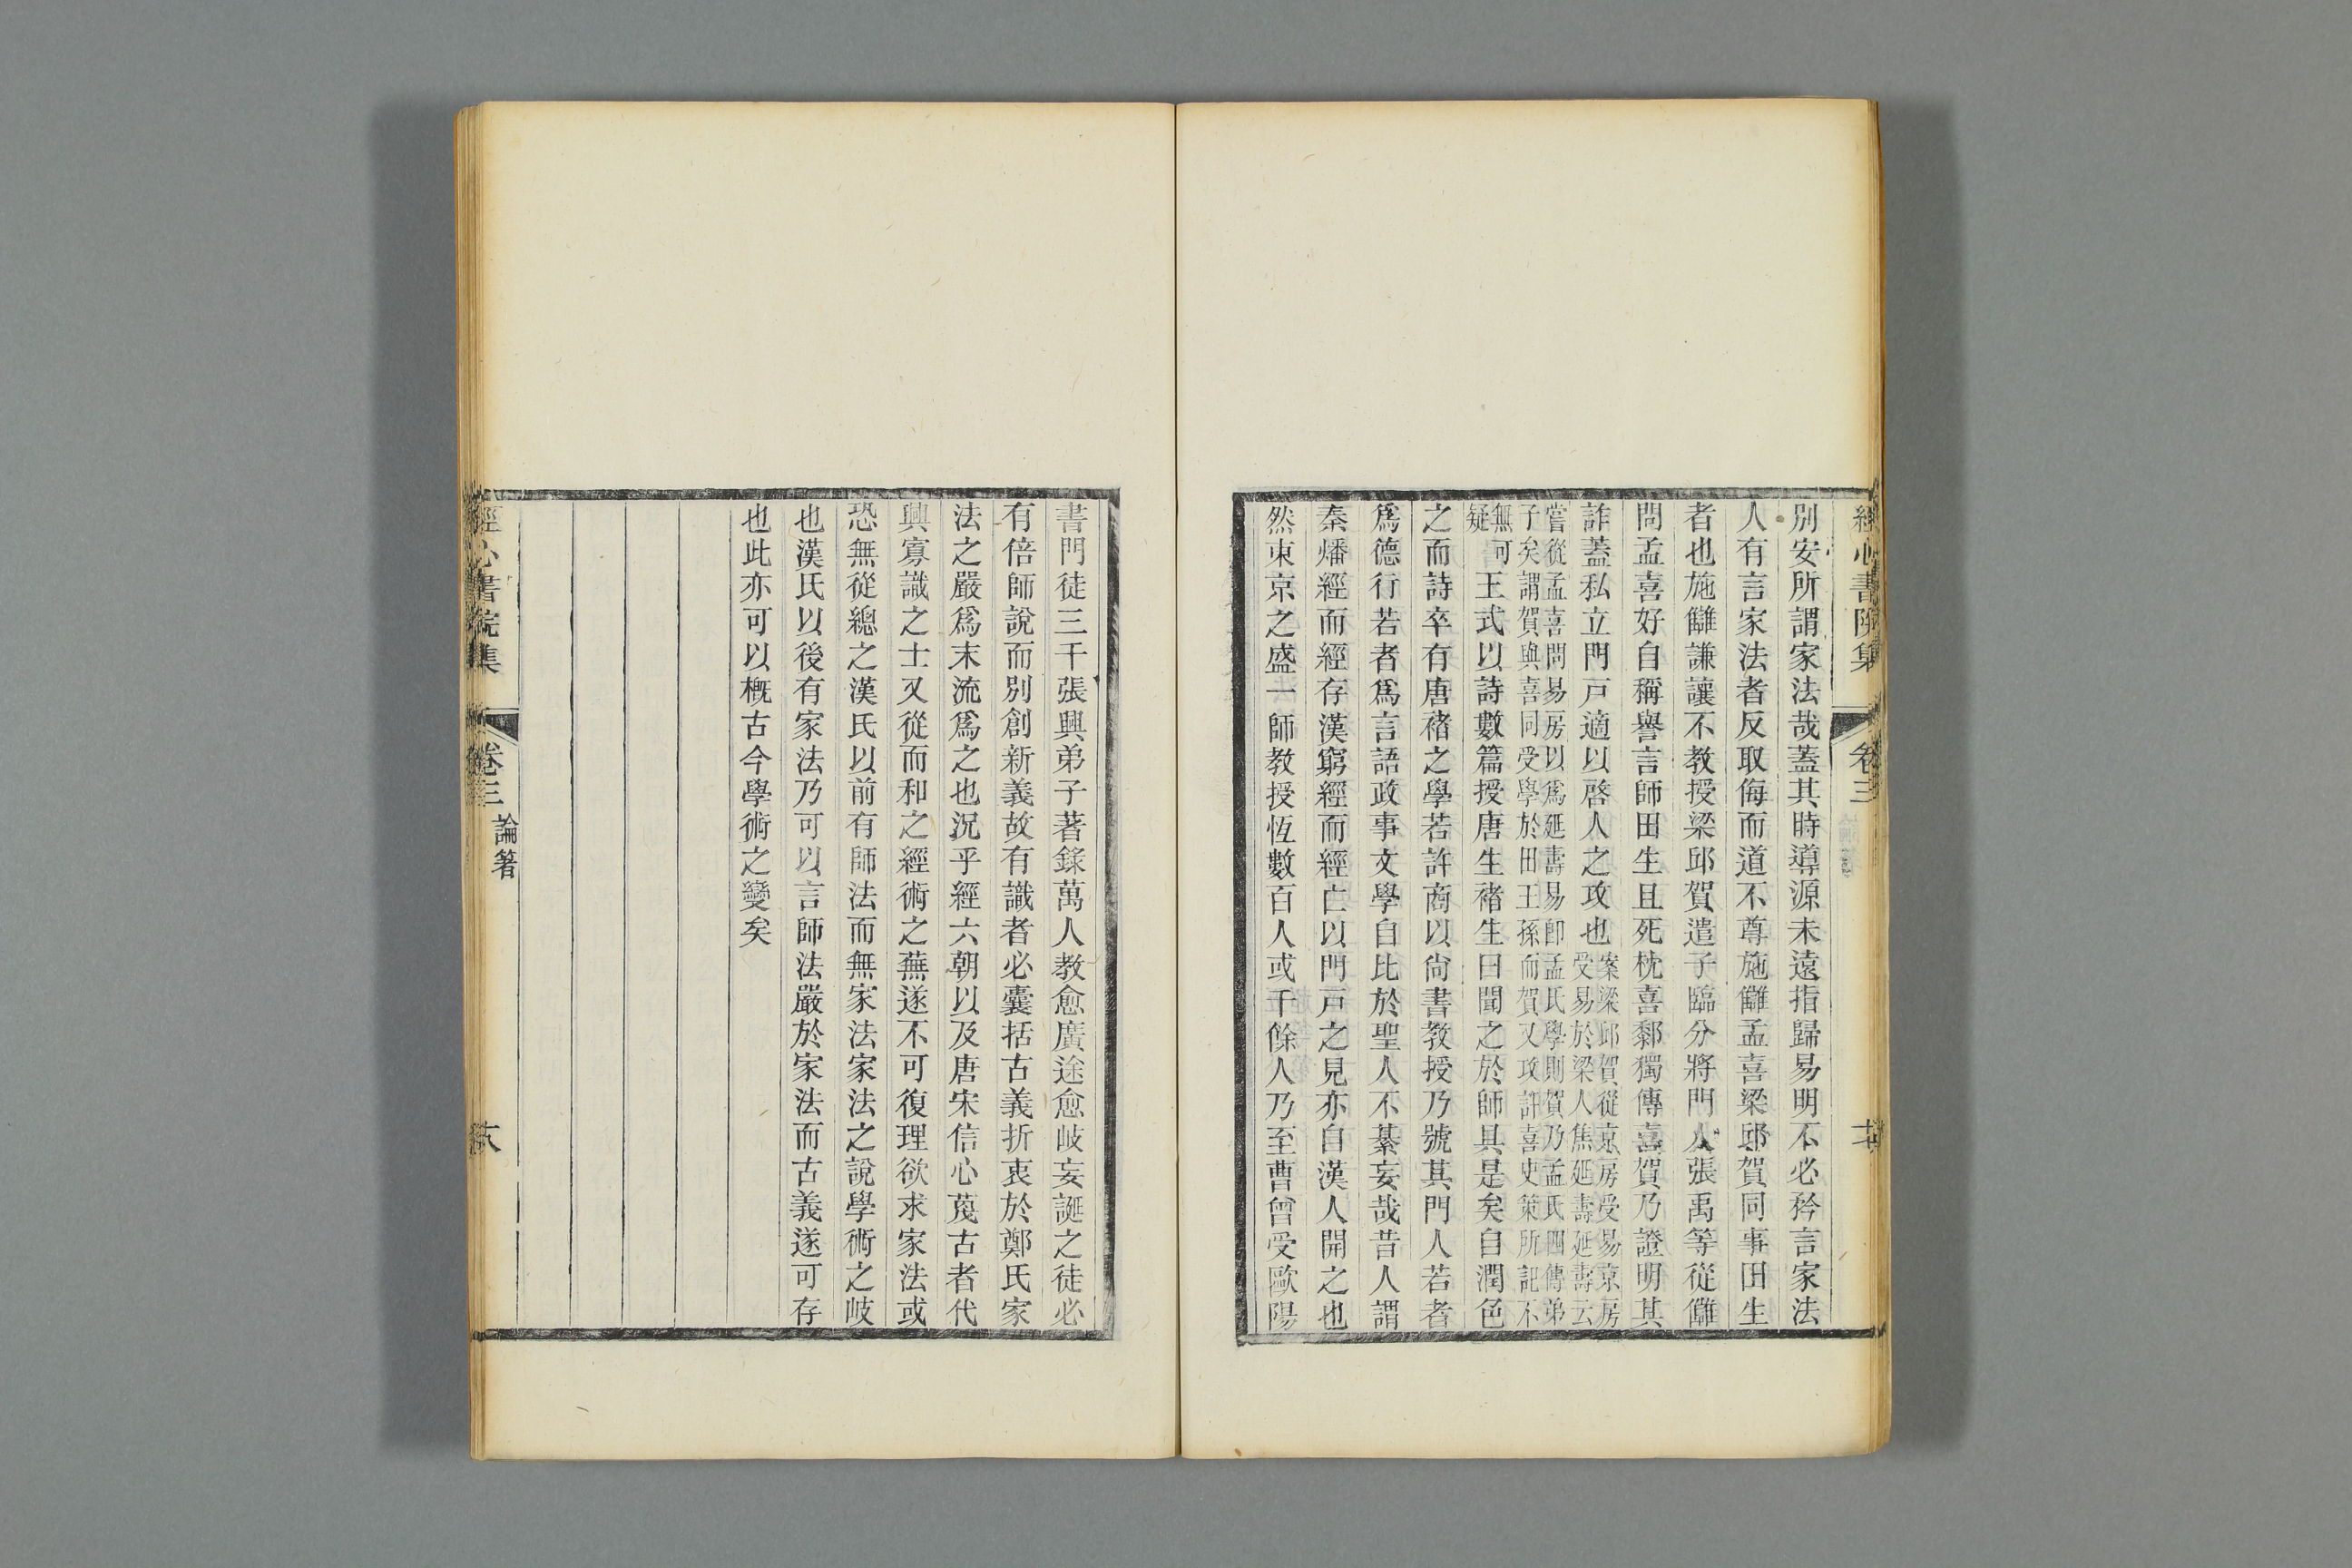 經心書院集 卷三
別安所謂家法哉蓋其時導源未遠指歸易明不必矜言家法
人有言家法者反取侮而道不尊施讎孟喜梁邱賀同事田生
者也施讎謙讓不教授梁邱賀遣子臨分將門人張禹等從讎
問孟喜好自稱譽言師田生且死枕喜郄獨傳喜賀乃證明其
詐蓋私立門戸適以啓人之攻也案梁邱賀從京房受易京房
受易於梁人焦延壽延壽云
嘗從孟喜問易房以爲延壽易卽孟氏學則賀乃孟氏四傳弟
子矣謂賀與喜同受學於田王孫而賀又攻訐喜史策所記不
無可
疑王式以詩數篇授唐生褚生曰聞之於師具是矣自潤色
之而詩卒有唐褚之學若許商以尙書教授乃號其門人若者
爲德行若者爲言語政事文學自比於聖人不綦妄哉昔人謂
秦燔經而經存漢窮經而經亡以門戸之見亦自漢人開之也
然東京之盛一師教授恆數百人或千餘人乃至曹曾受歐陽
書門徒三千張興弟子著錄萬人教愈廣途愈岐妄誕之徒必
有倍師說而別創新義故有識者必囊括古義折衷於鄭氏家
法之嚴爲末流爲之也況乎經六朝以及唐宋信心蔑古者代
興寡識之士又從而和之經術之蕪遂不可復理欲求家法或
恐無從總之漢氏以前有師法而無家法家法之說學術之岐
也漢氏以後有家法乃可以言師法嚴於家法而古義遂可存
也此亦可以槪古今學術之變矣
經心書院集 卷三 論箸 六